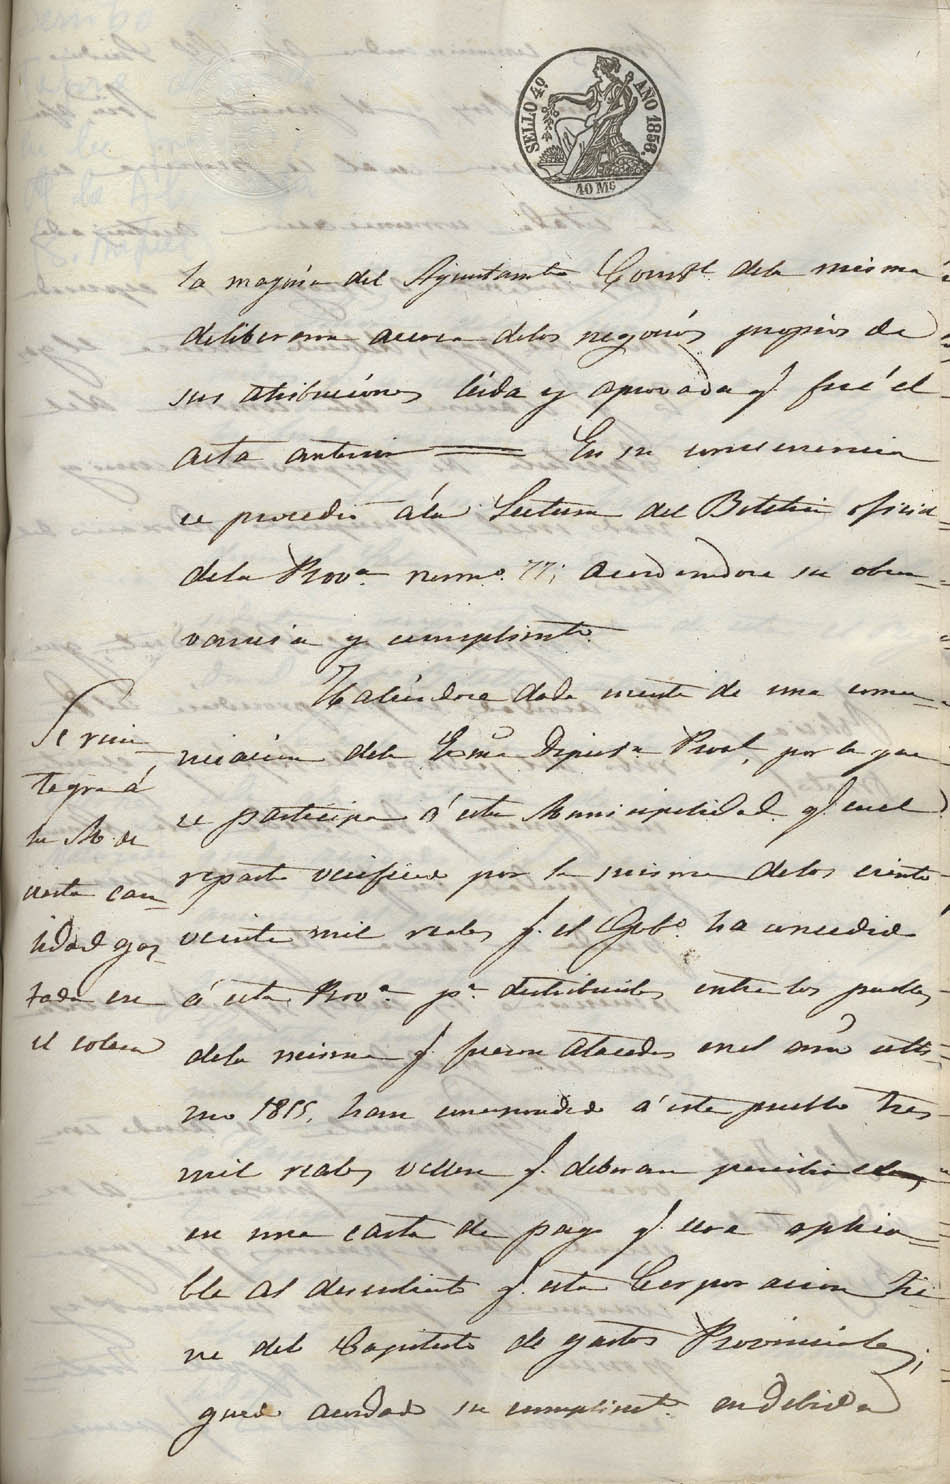 SELLO 4º AÑO 1858.
40 Ms
la mayoria del Ayuntamto Const.l dela misma
deliberaron acerca delos negocios propios de
sus atribuciones leida y aprovada q.e fué el
acta anterior = En su consecuencia
se procedió á la Lectura del Boletin oficial
dela Prov.a num.o 77; acordandose su obser-
vancia y cumplimto
Haciendose dado cuenta de una comu-
nicacion dela Exma Diputn Provl, por la que
se participa á esta Municipalidad q. en el
reparto verificado por la misma delos ciento
veinte mil reales q. el Gob.o ha concedido
á esta Prov.a p.a distribuirlos entre los pueblos
dela misma q. fueron atacados en el año ulti-
mo 1855, han correspondido á este pueblo tres
mil reales vellon q. deberan percibirse
en una carta de pago q. será aplica-
ble al descubierto q. esta Corporacion tie-
ne del Capitulo de gastos Provinciales;
quedó acordado su cumplimt.o en debida
Se rein-
tegra á
la M. de
cierta can-
tidad gas-
tada en
el colera